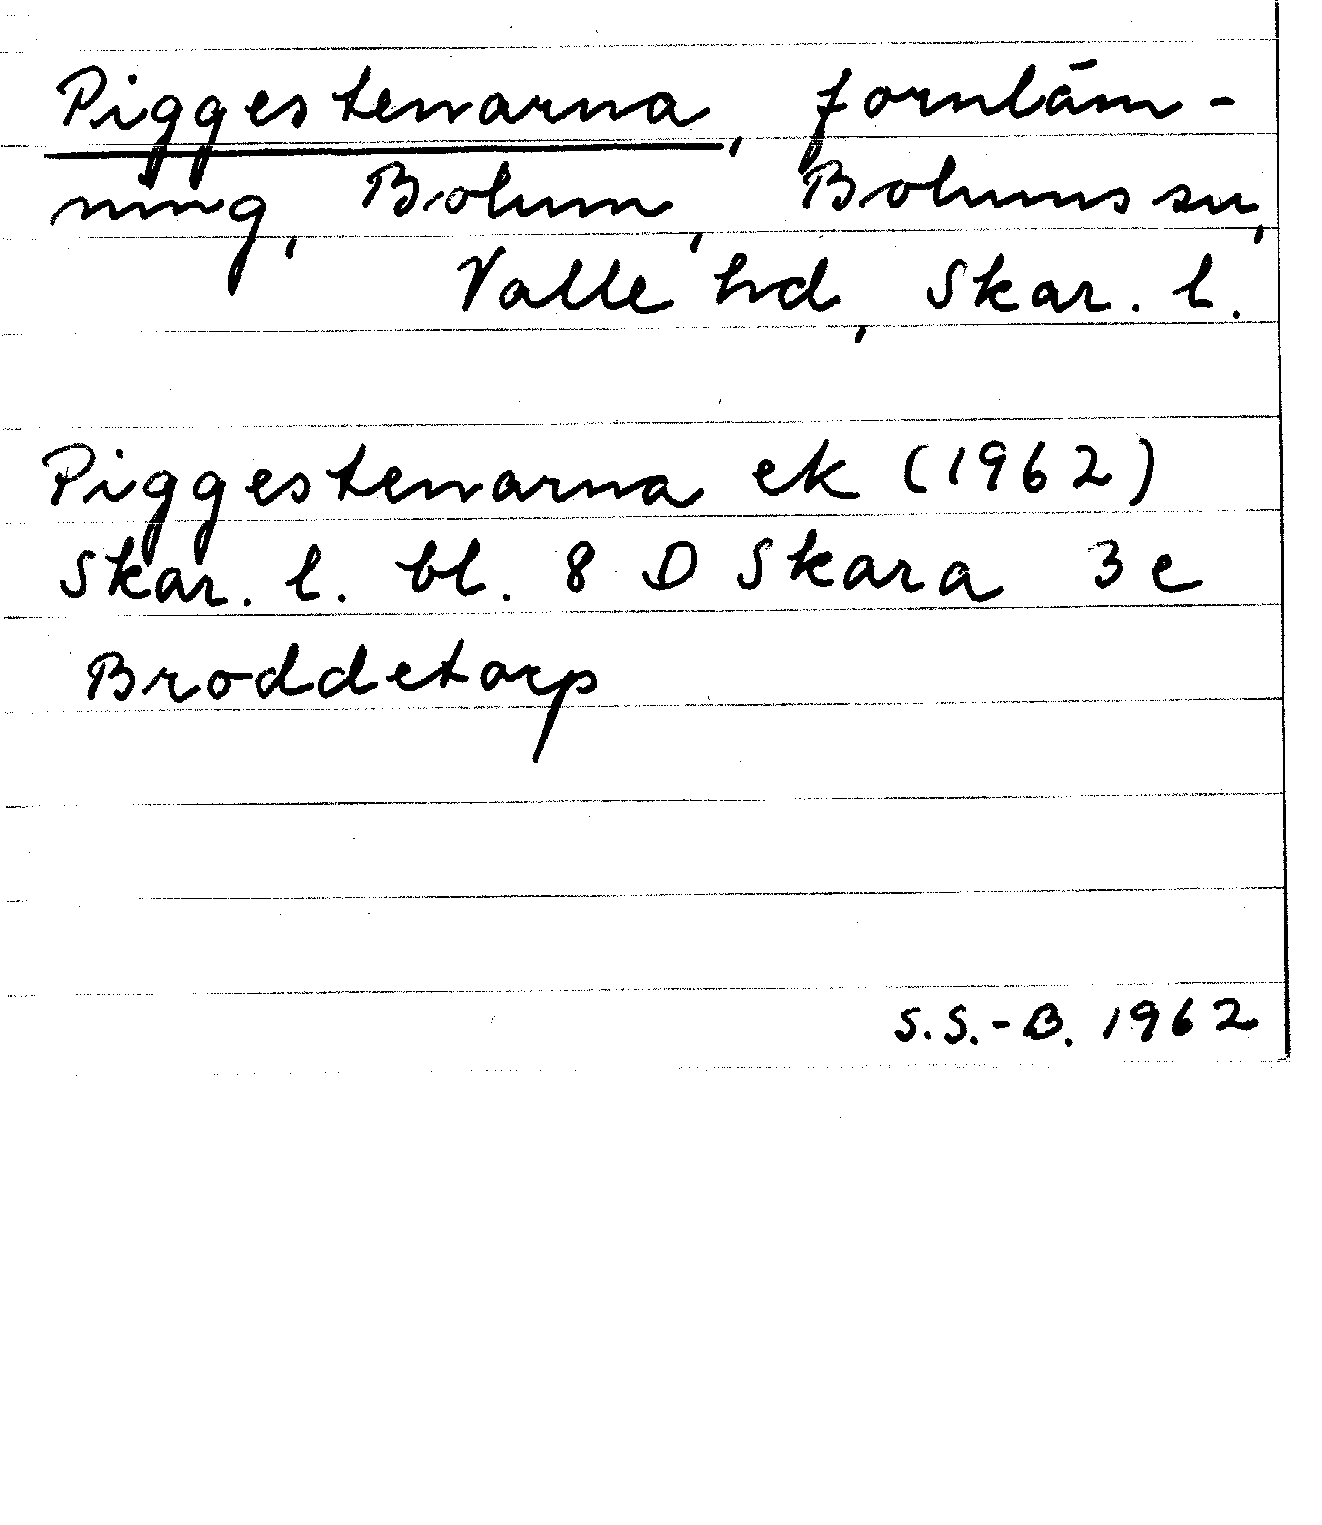 Piggestenarna, fornläm-
ning, Bolum, Bolums sn,
Valle hd, Skar. l.
Piggestenarna ek (1962)
Skar. l. bl. 8 D Skara 3 e
Broddetorp
S.S.-B. 1962